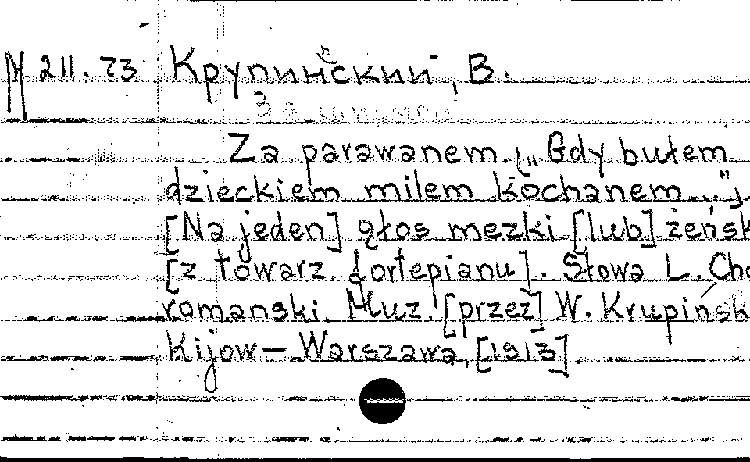 М 211.73 Крупинский, В.
За ширмой
Za parawanem („Gdy byłem
dzieckiem milem kochanem...").
[Na jeden] głos mezki [lub] żeńsk
[z towarz. fortepianu]. Słowa L. Cho
romanski. Muz. [przez] W. Krupinsk
Kijow — Warszawa, [1913].